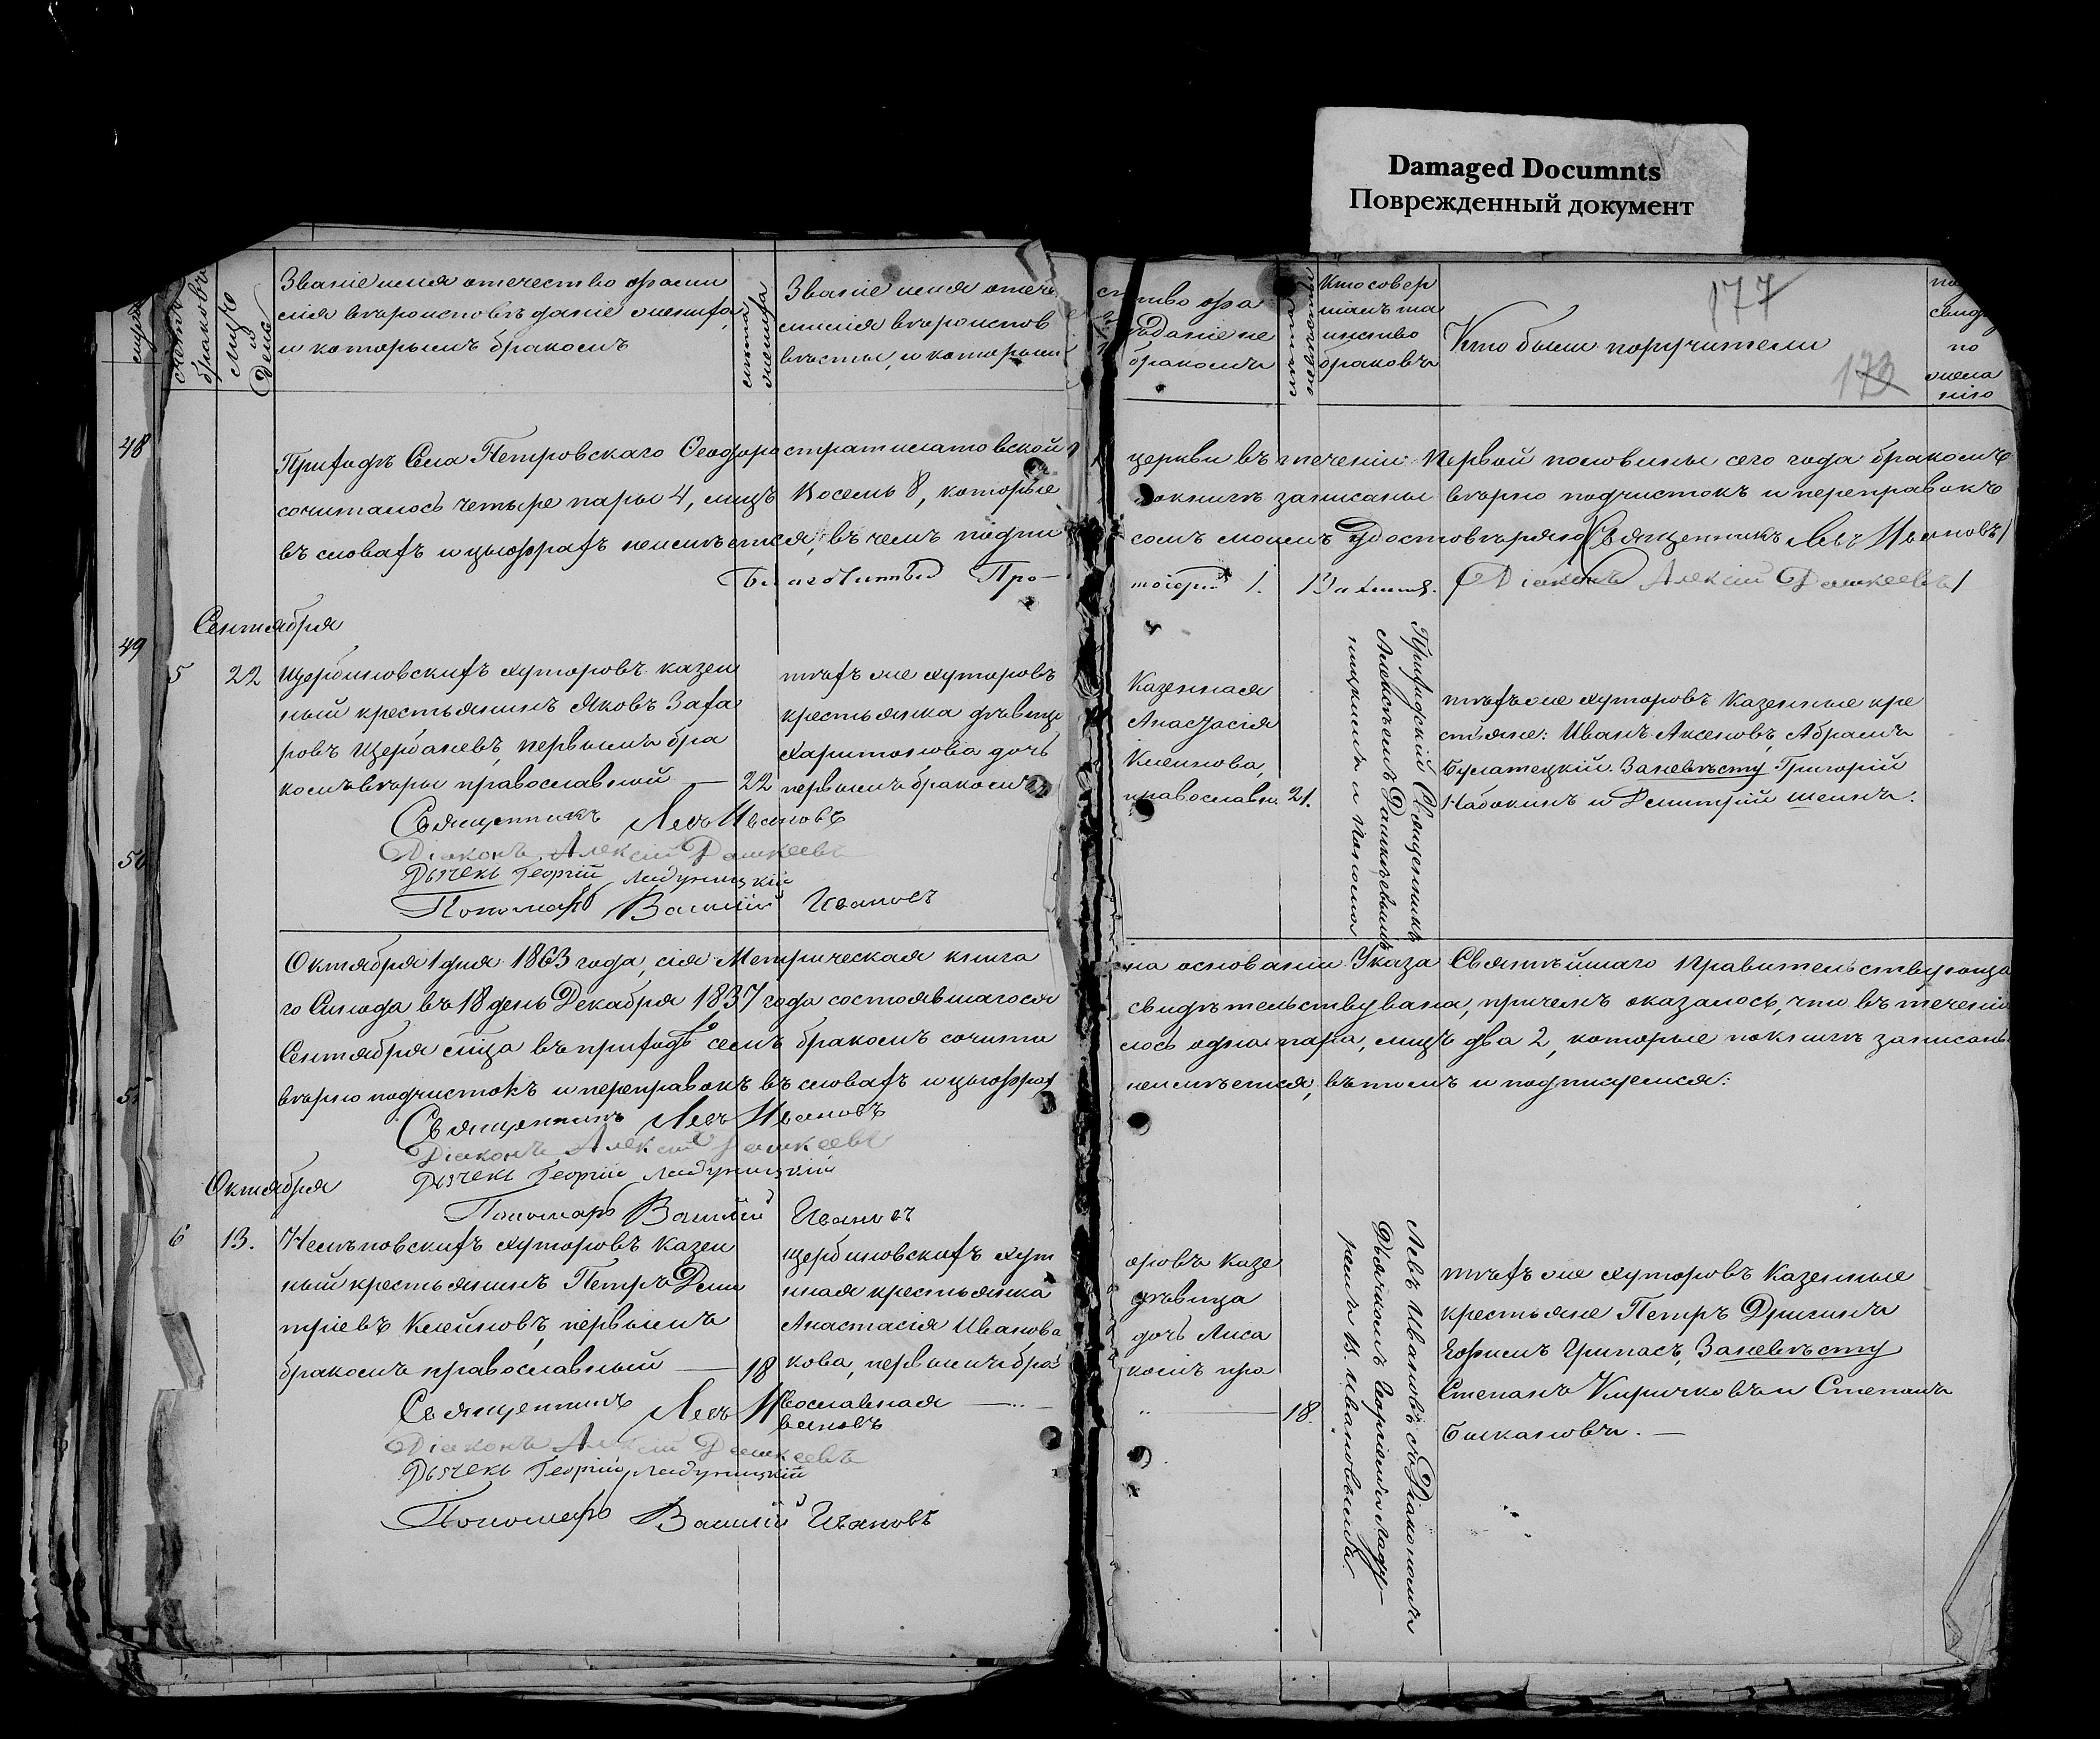 Damaged Documnts
Поврежденный документ
177
Счетъ браковъ
Мѣсяцъ и День
Званіе имя отечество фами
лія вѣроисповѣданіе жениха,
и которымъ бракомъ
лѣта жениха
Званіе имя отече ство фа
милія вѣроиспов ѣданіе не
вѣсты, и которым бракомъ
Кто совер
шалъ та
инство
браковъ
Кто были поручители
свид
по
жела
нію
48
Приходѣ Села Петровскаго Ѳеодоростратилатовской церкви въ теченіи Первой половины сего года бракомъ
сочиталось четыре пары 4, лицъ Восемь 8, которые по книгѣ записаны вѣрно подчистокъ и переправокъ
въ словахъ и цыфрахъ неимѣется, въ чемъ подпи сомъ моимъ Удостовѣряю (Священникъ Левъ Ивановъ)
Благочинный Про-тоіерей І. Діаконъ Алексій Дашкеевъ
49
Сентября
5 22
Щербиновскихъ хуторовъ казен
ный крестьянинъ Яковъ Заха
ровъ Щербаневъ, первымъ бра
комъ вѣры православной — 22
тѣхъ же хуторовъ Казенная
крестьянка дѣвица Анастасія
Харитонова дочь Клеинова,
первымъ бракомъ православн. 21.
Приходскій Священникъ
тѣхъ же хуторовъ Казенные кре
стьяне: Иванъ Аксеновъ, Абрамъ
Булатецкій. За невѣсту Григорій
Набокинъ и Димитрій Шеинъ.
Священникъ Левъ Ивановъ
50
Діаконъ Алексій Дашкеевъ
Дьячекъ Георгій Ладуницкій
Пономарь Василій Ивановъ
Октября 1 дня 1863 года, сія Метрическая книга на основаніи Указа Святѣйшаго Правительствующа
го Синода въ 18 день Декабря 1837 года состоявшагося свидѣтельствувана, причемъ оказалось, что въ теченіи
Сентября мѣсяца въ приходѣ семъ бракомъ сочита лось одна пара, лицъ два 2, которые по книгѣ записаны
вѣрно подчистокъ и переправокъ въ словахъ и цыфрах неимѣется, въ томъ и подписуемся:
Священникъ Левъ Ивановъ
Діаконъ Алексій Дашкеевъ
Дьячекъ Георгій Ладуницкій
Октября
Пономарь Василій Ивановъ
6 13.
хуторовъ Казен
ный крестьянинъ Петръ Дми
тріевъ Клейновъ, первымъ
бракомъ православный — 18
Щербиновскихъ хут оровъ Казе
нная крестьянка дѣвица
Анастасія Иванова дочь Лиса
кова, первымъ бра комъ пра
вославная — 18.
Левъ Ивановъ съ Діакономъ
Дьячкомъ Георгіемъ Ладу-
тѣхъ же хуторовъ Казенные
крестьяне Петръ Дригинъ
Ефимъ Грипасъ, За невѣсту
Степанъ Киричковъ и Степанъ
Балкановъ. —
Священникъ Левъ Ивановъ
Діаконъ Алексій Дашкеевъ
Дьячекъ Георгій Ладуницкій
Пономарь Василій Ивановъ